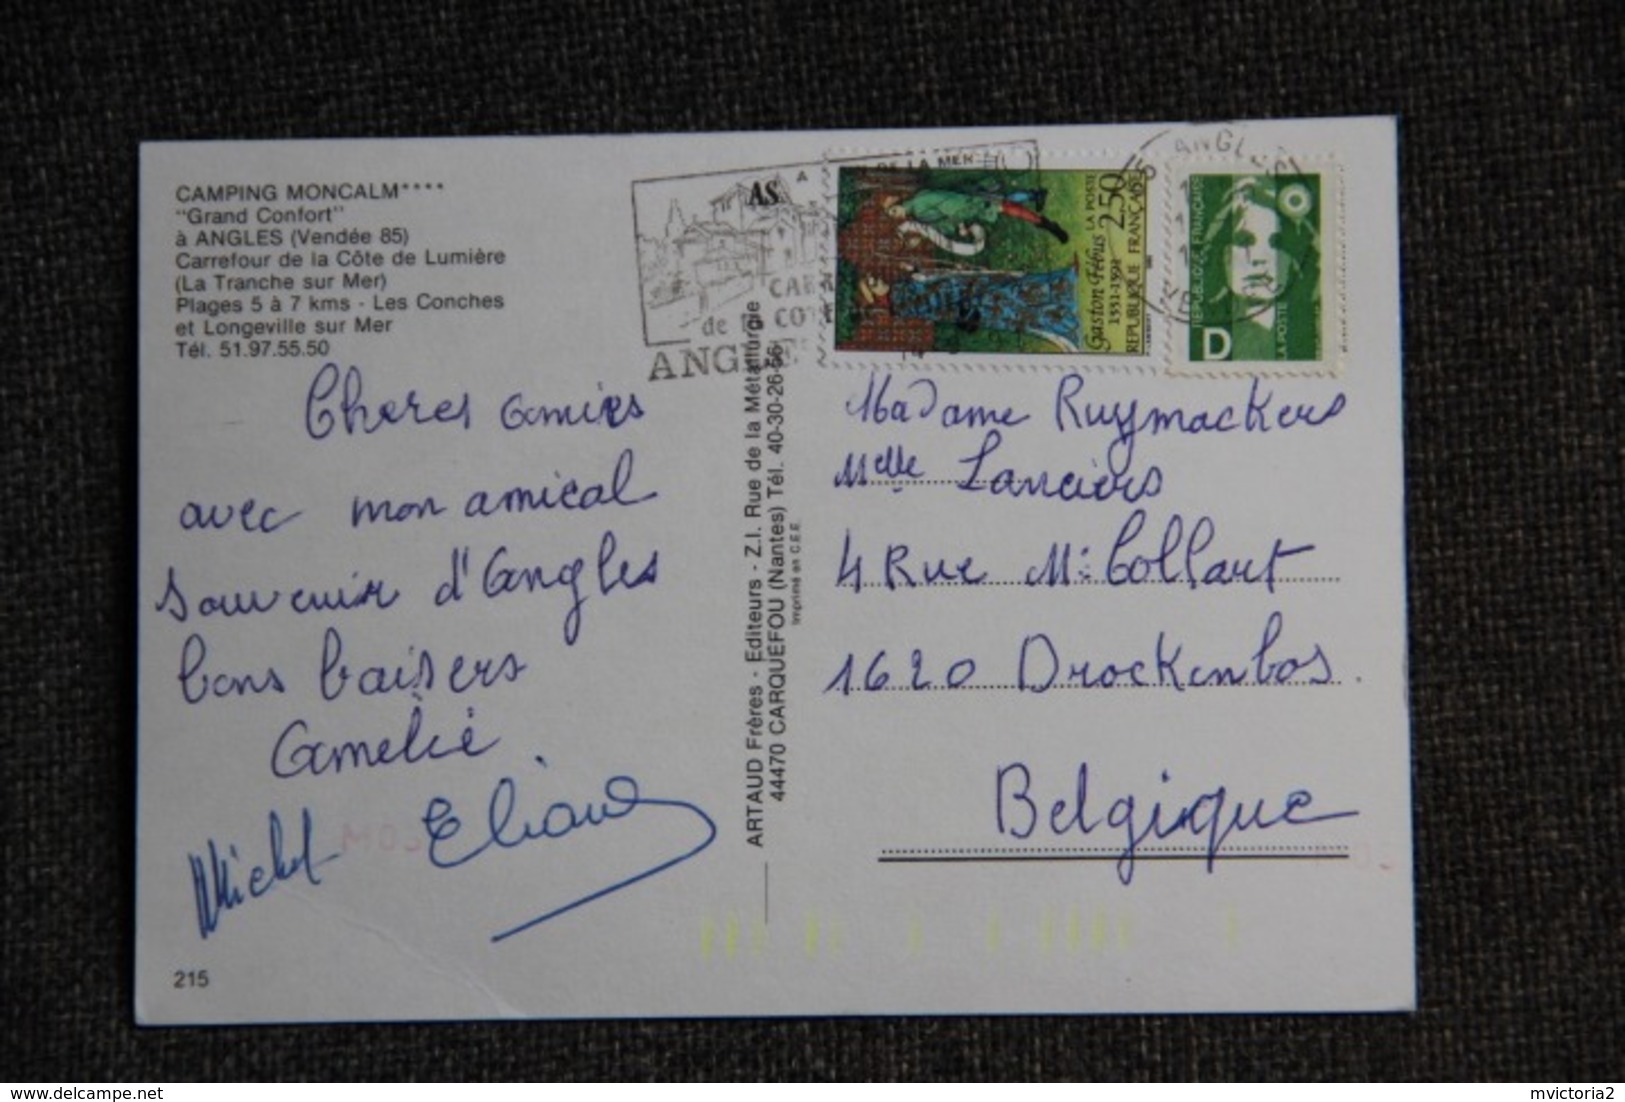 CAMPING MONCALM****
"Grand Confort"
à ANGLES (Vendée 85)
Carrefour de la Côte de Lumière
(La Tranche sur Mer)
Plages 5 à 7 kms - Les Conches
et Longeville sur Mer
Tél. 51.97.55.50
Cheres amies
avec mon amical
souvenir d'Angles
bons baisers
Amelie
Michel Eliane
215
ARTAUD Frères - Editeurs - Z.I. Rue de la Métallurgie
44470 CARQUEFOU (Nantes) Tél. 40-30-26-56
Imprimé en C.E.E.
AS.
DE LA MER
de la
ANGLES
LA POSTE
2.50
Gaston Fébus
1331-1391
REPUBLIQUE FRANÇAISE
ANGLES
D
LA POSTE
Madame Ruymackers
Melle Lanciers
4 Rue M: Collart
1620 Drockenbos.
Belgique
mvictoria2